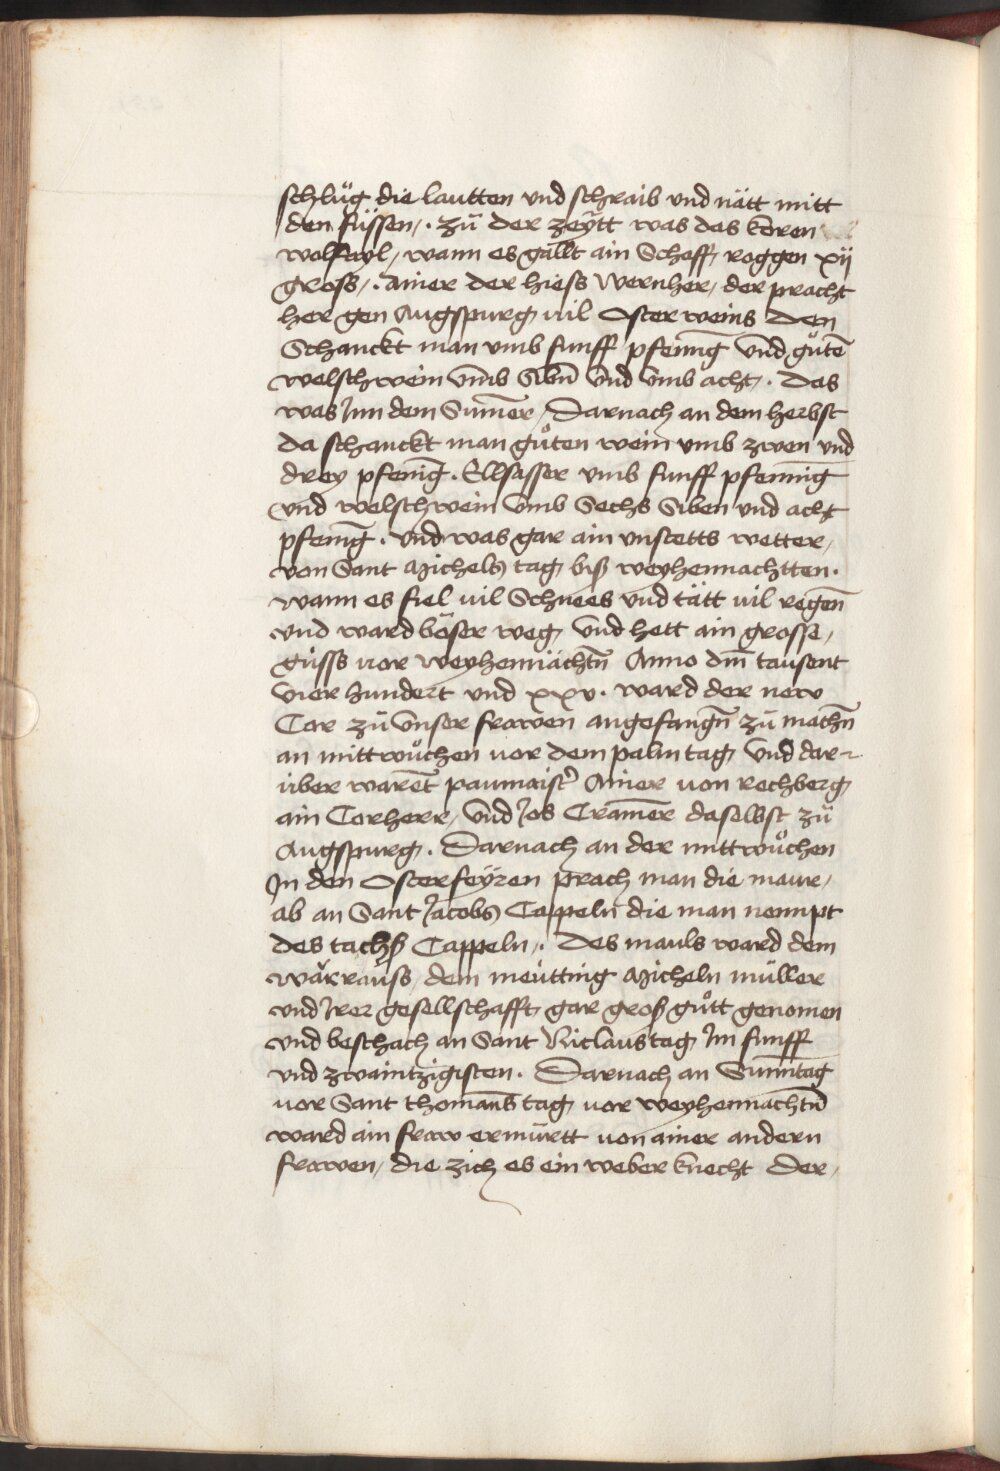 schlůg die lautten und schraib und nätt mitt
den füssen,. zů der zeÿtt was das koren
wolfayl, wann es gallt ain Scheff, roggen xij
gross,. Ainer der hiess wernher, der pracht
her gen Augspurg vil Osterweins den
Schanckt man vmb funff pfening̅ vnd gůte̅
welschwein vmb sibn̅ vnd vmb acht,. das
was Jnn dem Sum̅er, Darnach an dem herbst
da schanckt man gůten wein vmb zwen vnd
drey pfenig̅. Ellsasser vmb funff pfennig̅
vnd welschwein vmb Sechs Siben vnd acht
pfenig̅. vnd was gar ain vnstetts wetter,
von Sant Michels tag biß weyhennachtten.
wann es fiel vil Schnees vnd tätt vil regen̅
vnd ward böser weg vnd hett ain grosse,
güss vor weyhennächtn̅ Anno dm̅ tausent
vier hundert vnd xxv. ward der new
Cor zů vnser frawen angefangn̅ zů machn̅
an mittwůchen vor dem palm tag vnd dar-
über waren̅t paumaistr̕ Ainer von rechberg
ain Corherr, vnd Jos Cram̅er daselbst zů
Augspurg. Darnach an der mittwůchen
Jn den Osterfeÿren prach man die maur,
ab an Sant Jacobs Cappeln die man nempt
des tachß Cappeln,. des mauls ward dem
wärrauss, dem meütting Micheln müller
vnd Jrer gesellschafft gar groß gůtt genomen
vnd beschach an Sant Niclaus tag Jm funff
vnd zwaintzigisten. Darnach an Sunn̅tag
vor Sant thoman̅s tag vor weyhennachtn̅
ward ain fraw ermürtt von ainer andern
frawen, die zich es ein weber knecht der,